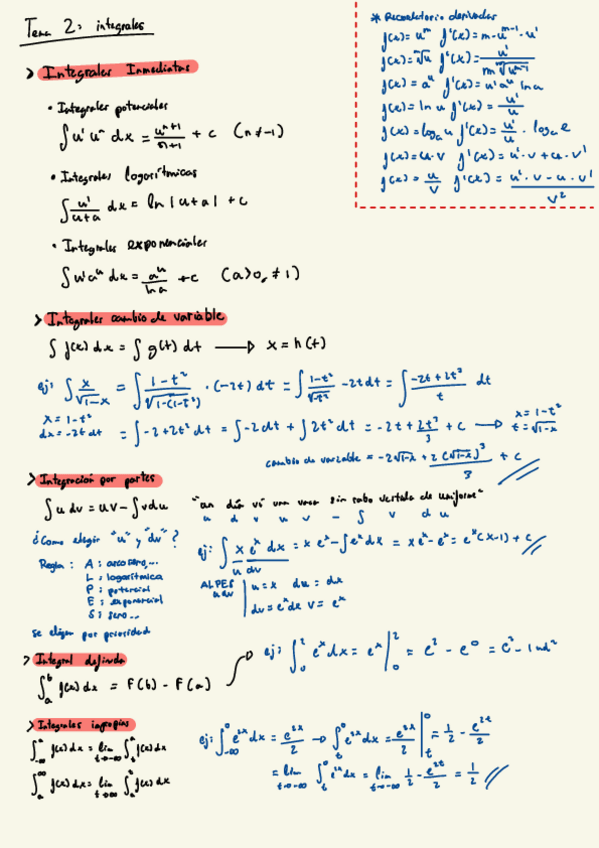 Tema 2: integrales
* Recordatorio derivadas
f(x) = u^m f'(x) = m·u^{m-1}·u'
f(x) = ^m√u f'(x) = u' / (m ^m√(u^{m-1}))
f(x) = a^u f'(x) = u' a^u ln a
f(x) = ln u f'(x) = u'/u
f(x) = log_a u f'(x) = u'/u · log_a e
f(x) = u·v f'(x) = u'·v + u·v'
f(x) = u/v f'(x) = (u'·v - u·v') / v²
> Integrales Inmediatas
• Integrales potenciales
∫u' u^n dx = u^{n+1}/(n+1) + c (n≠-1)
• Integrales logarítmicas
∫ u'/(u+a) dx = ln|u+a| + c
• Integrales exponenciales
∫u' a^u dx = a^u/ln a + c (a>0, ≠1)
> Integrales cambio de variable
∫ f(x) dx = ∫ g(t) dt → x = h(t)
ej: ∫ x/√(1-x) = ∫ (1-t²)/√(1-(1-t²)) · (-2t) dt = ∫ (1-t²)/√t² -2t dt = ∫ (-2t+2t³)/t dt
x = 1-t²
dx = -2t dt
= ∫ -2+2t² dt = ∫-2dt + ∫2t² dt = -2t + 2t³/3 + c → x = 1-t²
t = √(1-x)
cambio de variable = -2√(1-x) + 2(√(1-x))³/3 + c
> Integración por partes
∫u dv = uv - ∫v du "un día vi una vaca sin rabo vestida de uniforme"
u d v u v - ∫ v du
¿Como elegir "u" y "dv"?
Regla: A: arcoseno,...
L: logarítmica
P: potencial
E: exponencial
S: seno...
se eligen por prioridad
ej: ∫ x e^x dx = x e^x - ∫e^x dx = x e^x - e^x = e^x(x-1) + c
u dv
ALPES
u dv
u = x du = dx
dv = e^x dx v = e^x
> Integral definida
∫_a^b f(x) dx = F(b) - F(a)
ej: ∫_0^2 e^x dx = e^x |_0^2 = e² - e^0 = e² - 1 ud²
> Integrales impropias
∫_{-∞}^a f(x) dx = lim_{t→-∞} ∫_t^a f(x) dx
∫_a^∞ f(x) dx = lim_{t→∞} ∫_a^t f(x) dx
ej: ∫_{-∞}^0 e^{2x} dx = e^{2x}/2 → ∫_t^0 e^{2x} dx = e^{2x}/2 |_t^0 = 1/2 - e^{2t}/2
= lim_{t→-∞} ∫_t^0 e^{2x} dx = lim_{t→-∞} 1/2 - e^{2t}/2 = 1/2